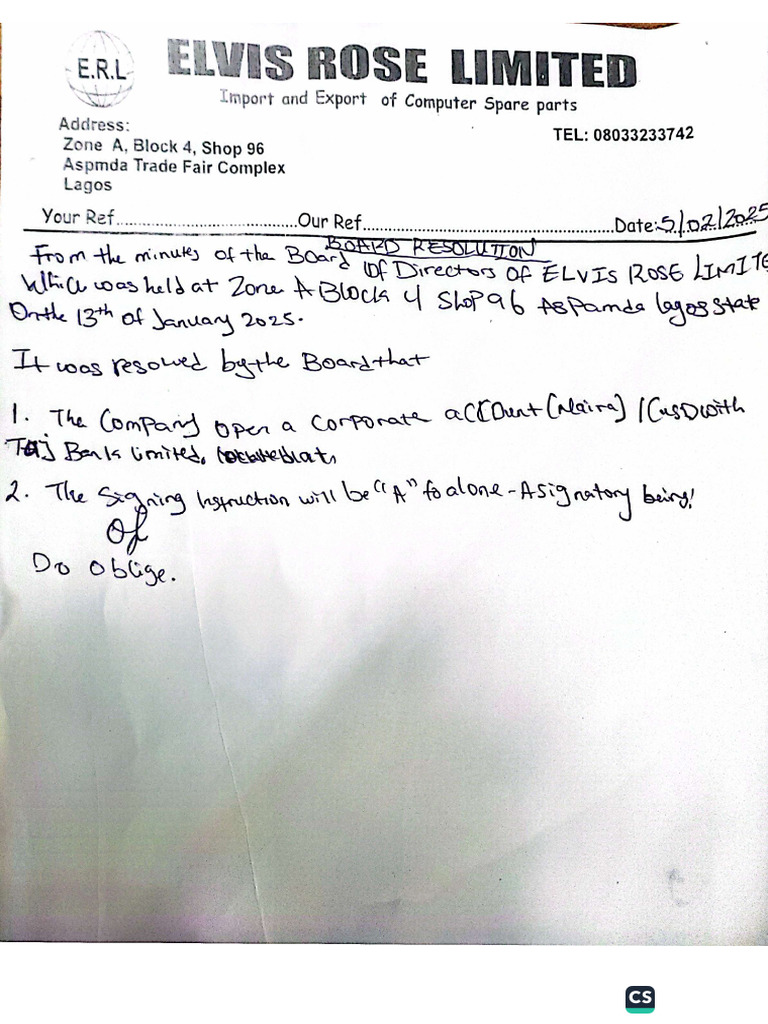 E.R.L
ELVIS ROSE LIMITED
Import and Export of Computer Spare parts
Address:
Zone A, Block 4, Shop 96
Aspmda Trade Fair Complex
Lagos
TEL: 08033233742
Your Ref..................................Our Ref..................................................Date:5/02/2025
BOARD RESOLUTION
From the minutes of the Board Of Directors Of ELVIS ROSE LIMITE
Which was held at Zone A Block 4 Shop 96 Aspamda Lagos State
On the 13th of January 2025.
It was resolved by the Board that
1. The Company open a corporate account (Naira) / (USD with
Taj Bank limited,
2. The Signing Instruction will be "A" to alone - A signatory being!
Of
Do oblige.
CS